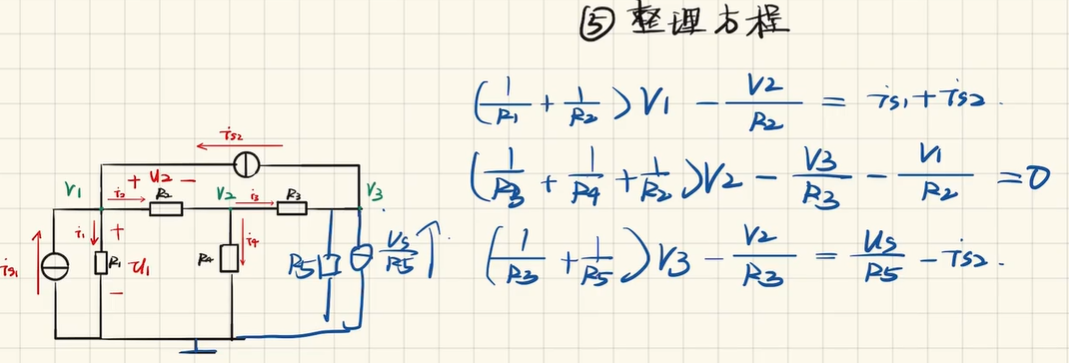 ⑤ 整理方程
(1/R1 + 1/R2) V1 - V2/R2 = is1 + is2.
(1/R3 + 1/R4 + 1/R2) V2 - V3/R3 - V1/R2 = 0
(1/R3 + 1/R5) V3 - V2/R3 = Us/R5 - is2.
is2
V1 + U2 - V2 V3
i2 R2 i3 R3
is1 i1 + R1 U1 - R4 i4 R5 Vs/R5